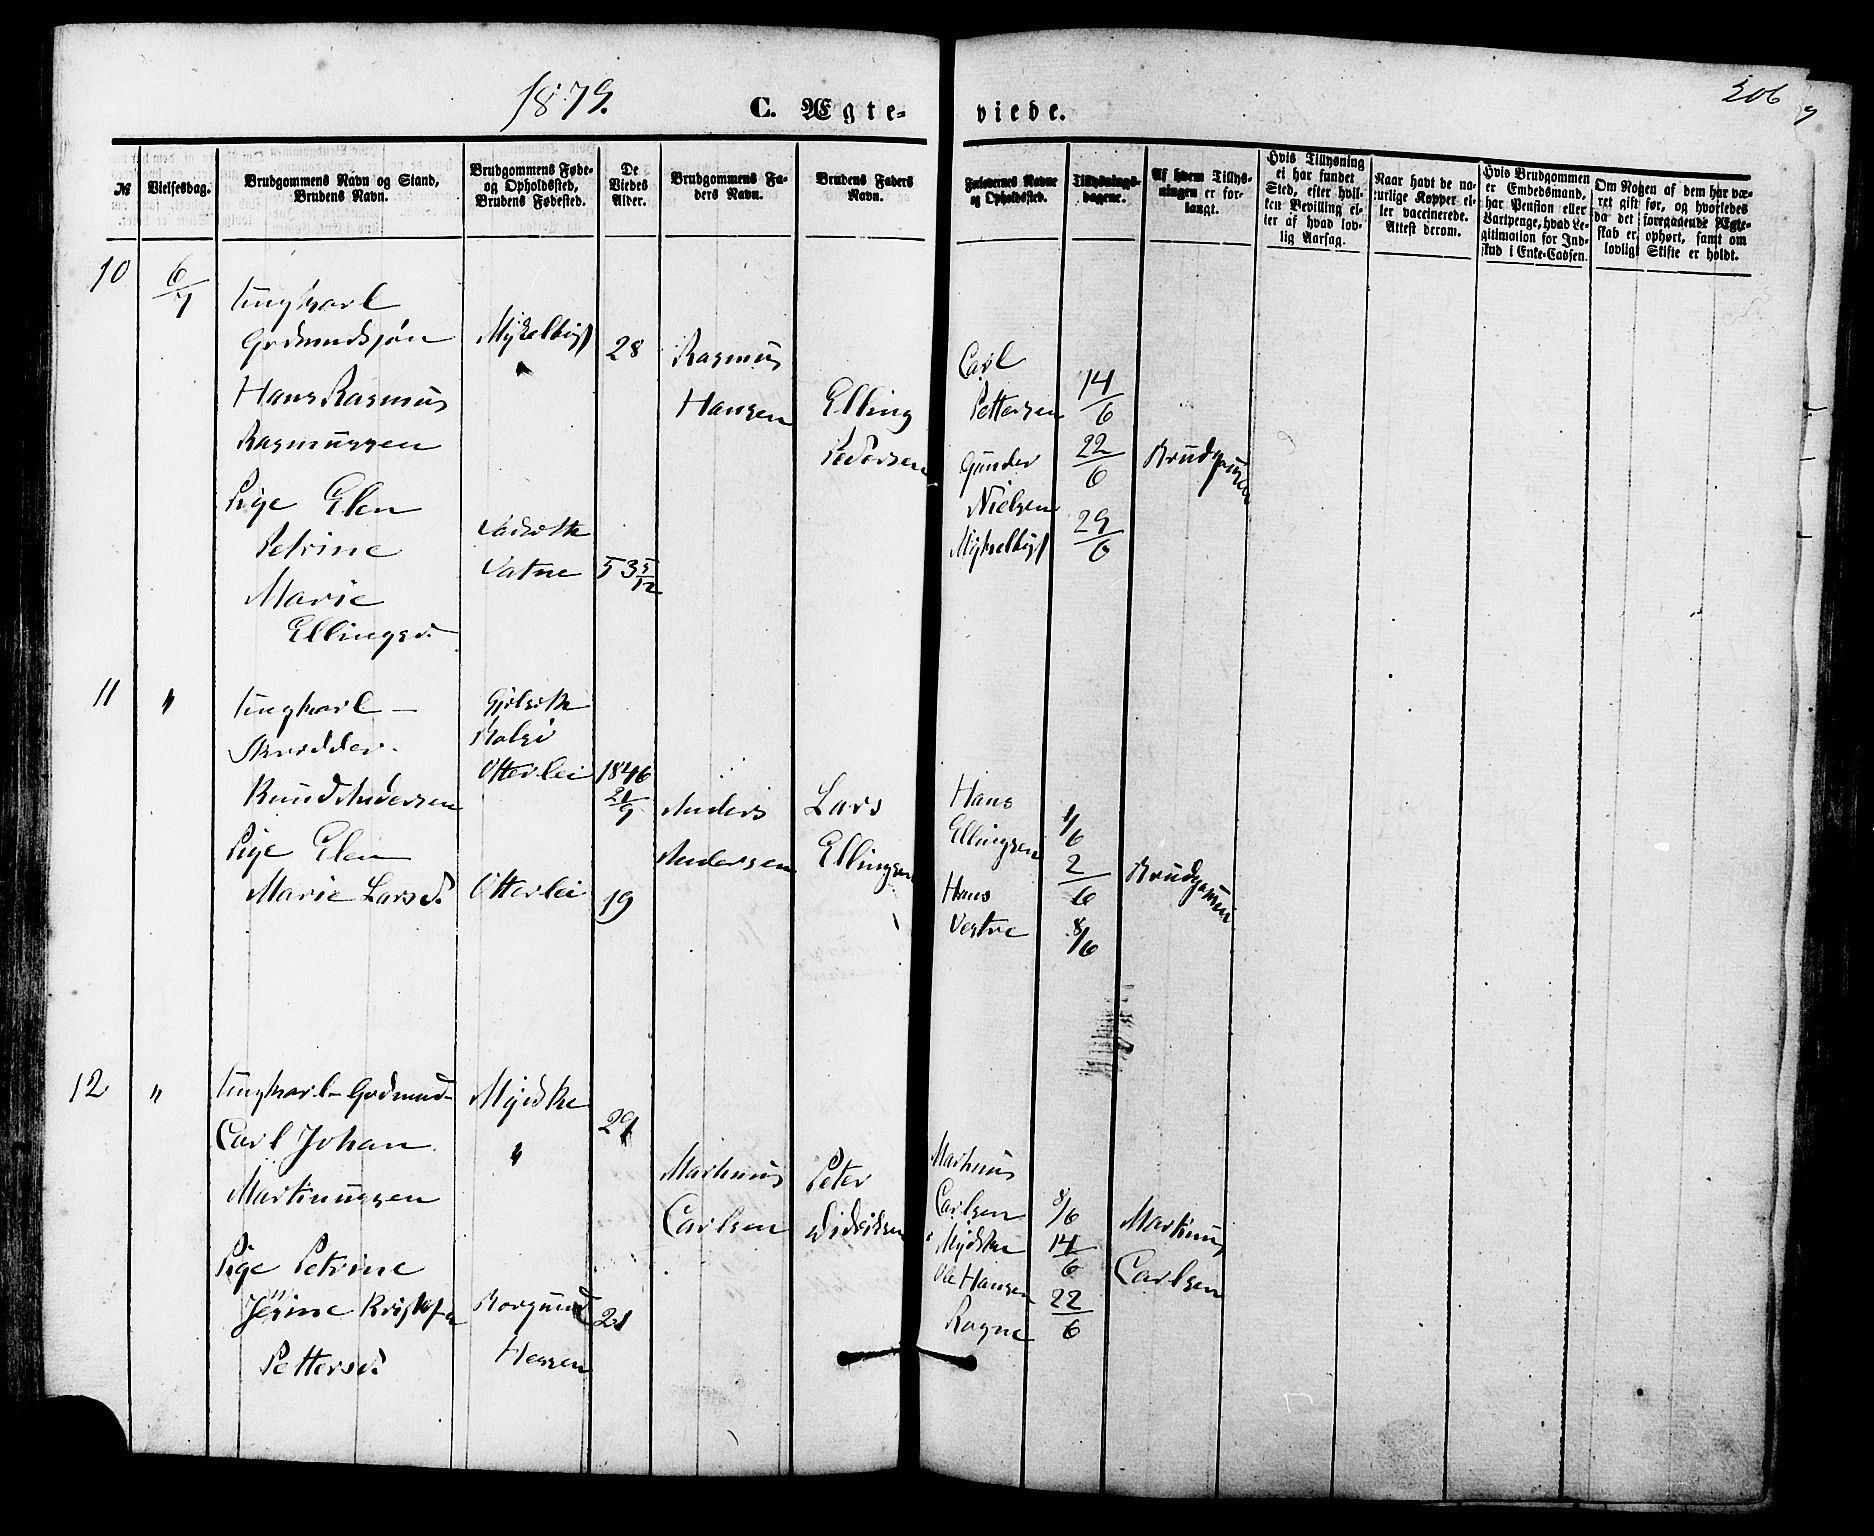 1879.
C. Ægte-
viede.
206
№
Vielsesdag.
Brudgommens Navn og Stand,
Brudens Navn.
Brudgommens Føde-
og Opholdssted,
Brudens Fødested.
De
Viedes
Alder.
Brudgommens Fa-
ders Navn.
Brudens Faders
Navn.
Forlovernes Navne
og Opholdssted.
Tillysnings-
dagene.
Af hvem Tillys-
ningen er for-
langt.
Hvis Tillysning
ei har fundet
Sted, efter hvil-
ken Bevilling el-
ler af hvad lov-
lig Aarsag.
Naar havt de na-
turlige Kopper el-
ler vaccinerede.
Attest derom.
Hvis Brudgommen
er Embedsmand,
har Pension eller
Vartpenge, hvad Le-
gitimation for Ind-
skud i Enke-Cassen.
Om Nogen af dem har væ-
ret gift før, og hvorledes
da det foregaaende Ægte-
skab er ophørt, samt om
lovligt Skifte er holdt.
10
6/7
Ungkarl
Godmundsjøn
Hans Rasmus
Rasmussen
Pige Elen
Petrine
Marie
Ellingsd.
Mykelbust
Vatne
28
53 5/12
Rasmus
Hansen
Elling
Pedersen
Carl
Pettersen
Gunder
Nielsen
Mykelbust
14/6
22/6
29/6
Brudgommen
11
"
Ungkarl –
Skrædder.
Knud Andersen
Pige Elen
Marie Larsd.
Otterlei
Otterlei
1846
21/9
19
Anders
Andersen
Lars
Ellingsen
Hans
Ellingsen
Hans
Vestre
1/6
2/6
8/6
Brudgommen
12
"
Ungkarl – Godmund-
Carl Johan
Martinussen
Pige Petrine
Jesine
Pettersd.
"
Borgund
Hessen
29
21
Martinus
Carlsen
Peter
Didriksen
Martinus
Carlsen
Ole Hansen
Rogne
8/6
14/6
22/6
Martinus
Carlsen